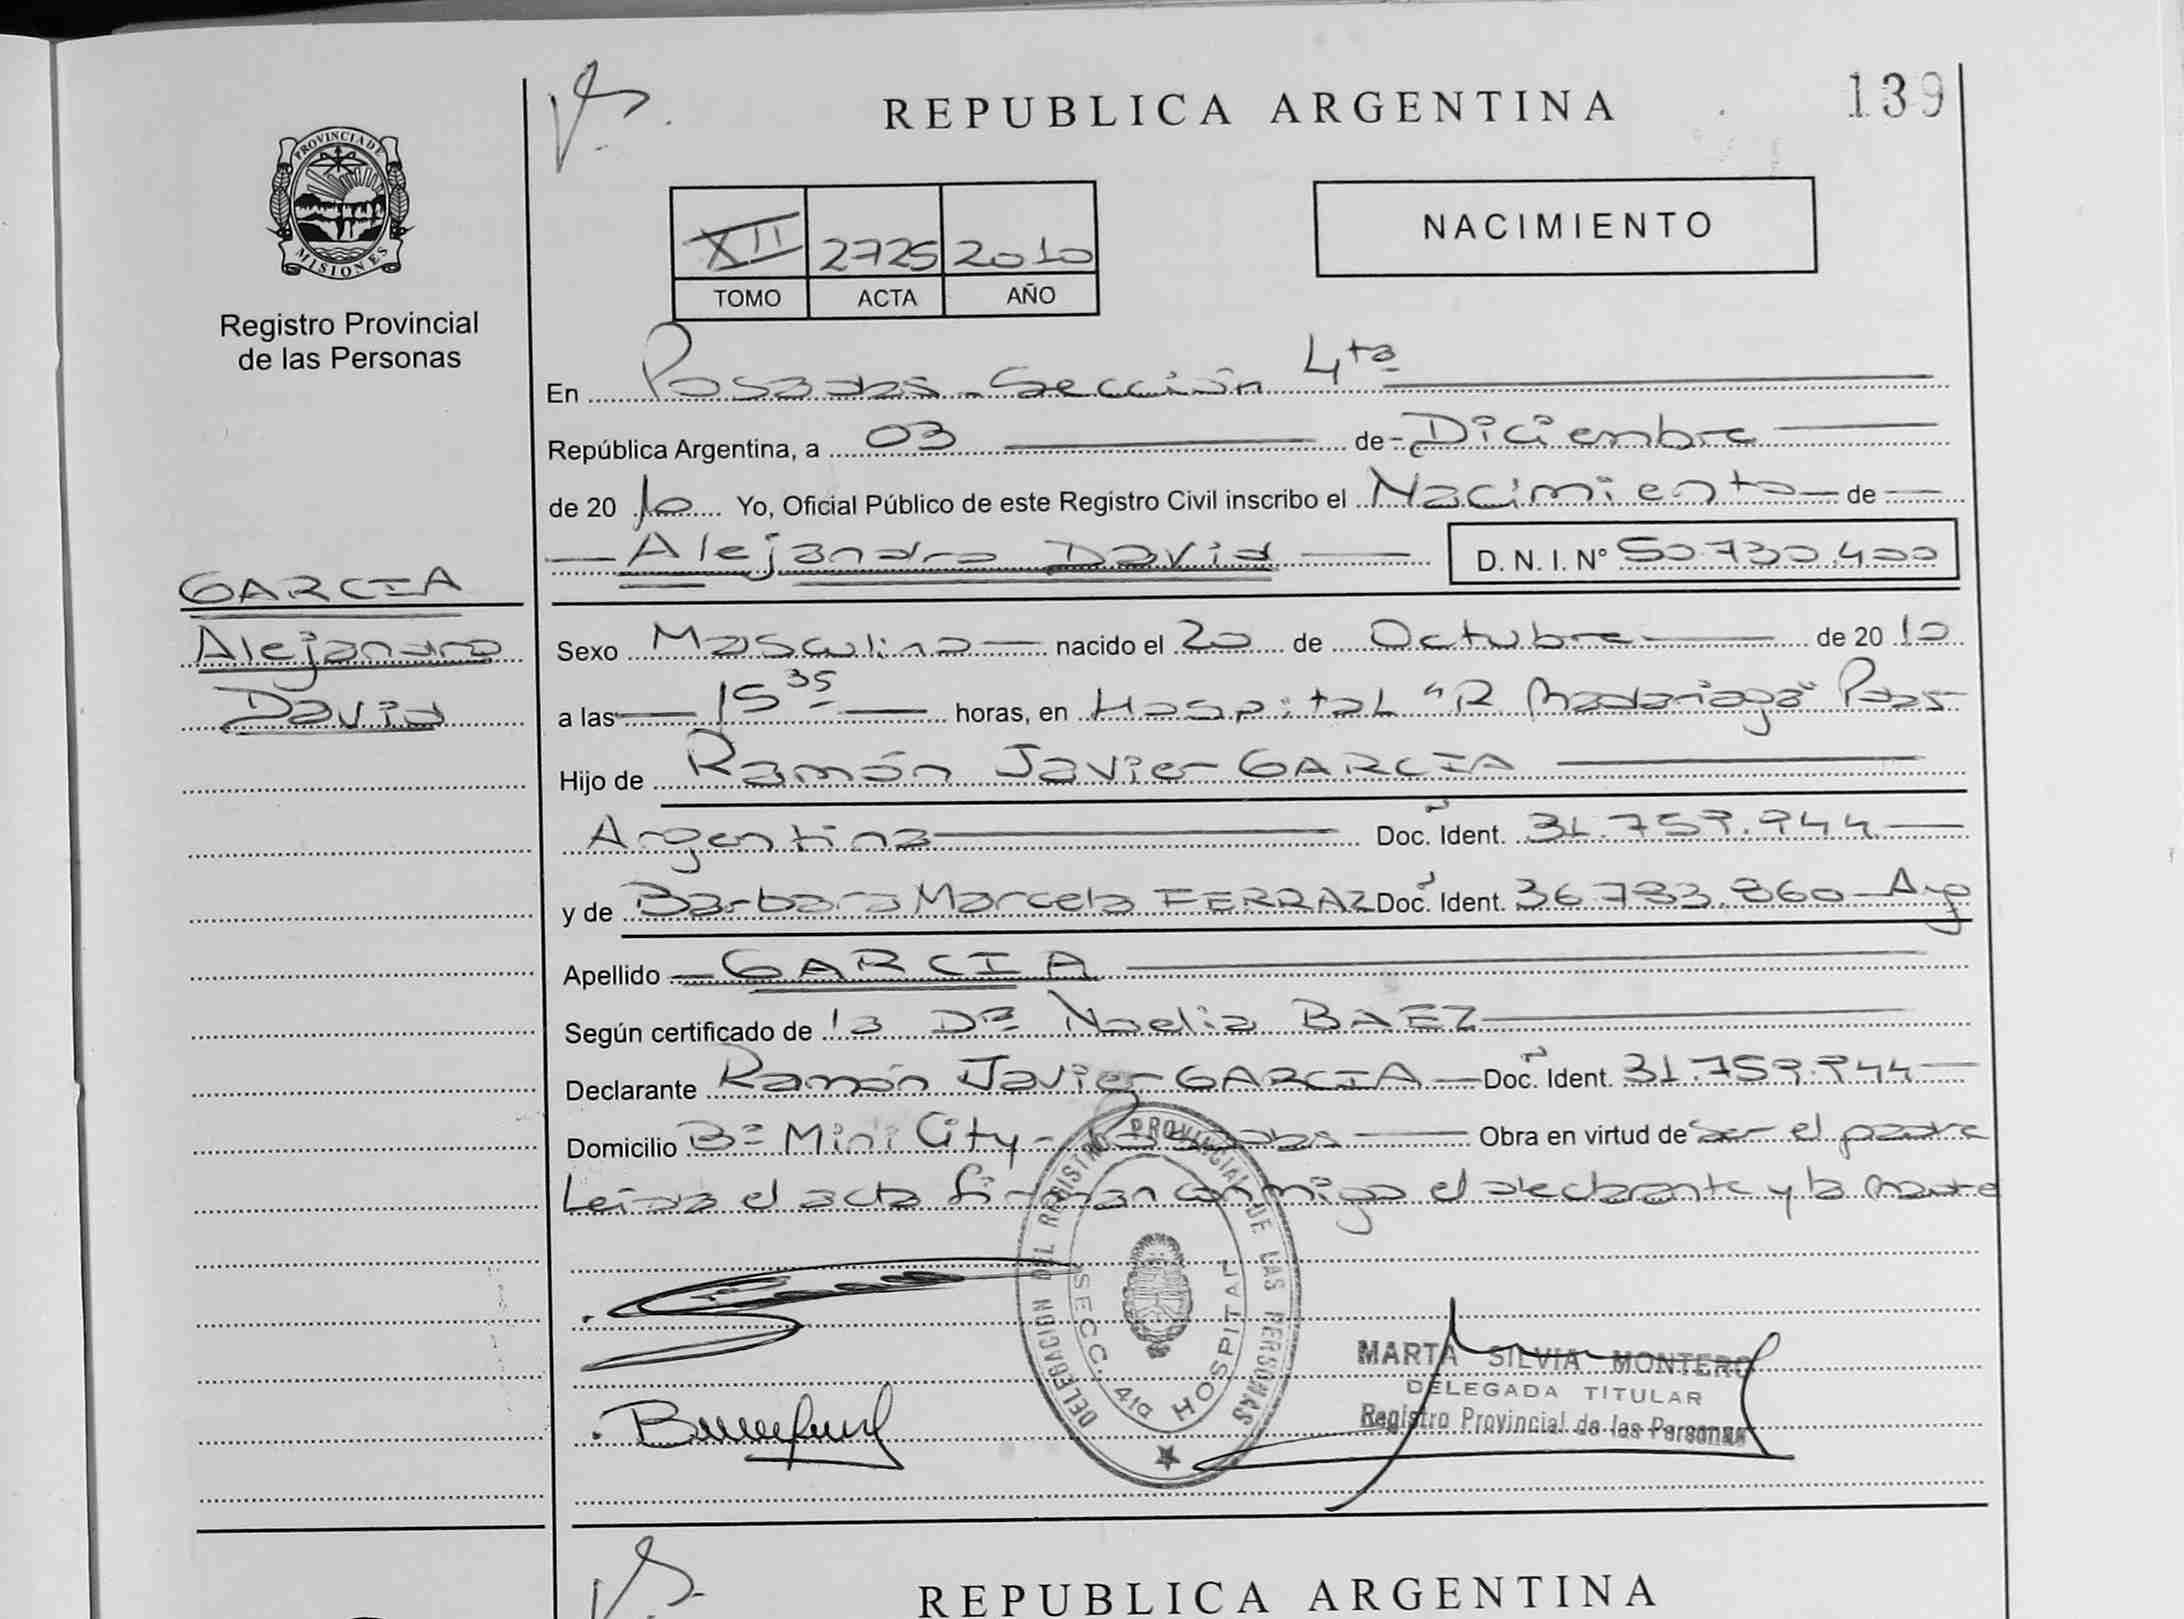 REPUBLICA ARGENTINA
139
PROVINCIA DE
MISIONES
Registro Provincial
de las Personas
XII 2725 2010
TOMO ACTA AÑO
NACIMIENTO
En Posadas - Sección 4ta
República Argentina, a 03 de Diciembre
de 2010 Yo, Oficial Público de este Registro Civil inscribo el Nacimiento de
Alejandro David D. N. I. N° 50.730.400
GARCIA
Alejandro
David
Sexo Masculino nacido el 20 de Octubre de 2010
a las 15 35 horas, en Hospital "R Madariaga" Pdas
Hijo de Ramón Javier GARCIA
Argentina Doc. Ident. 31.759.944
y de Barbara Marcela FERRAZ Doc. Ident. 36.783.860 Arg
Apellido GARCIA
Según certificado de la Dra Noelia BAEZ
Declarante Ramón Javier GARCIA Doc. Ident. 31.759.944
Domicilio B° Mini City - Posadas Obra en virtud de ser el padre
Leída el acta firman conmigo el declarante y la madre
DELEGACION DEL REGISTRO PROVINCIAL DE LAS PERSONAS
SECC. 4ta HOSPITAL
MARTA SILVIA MONTERO
DELEGADA TITULAR
Registro Provincial de las Personas
REPUBLICA ARGENTINA